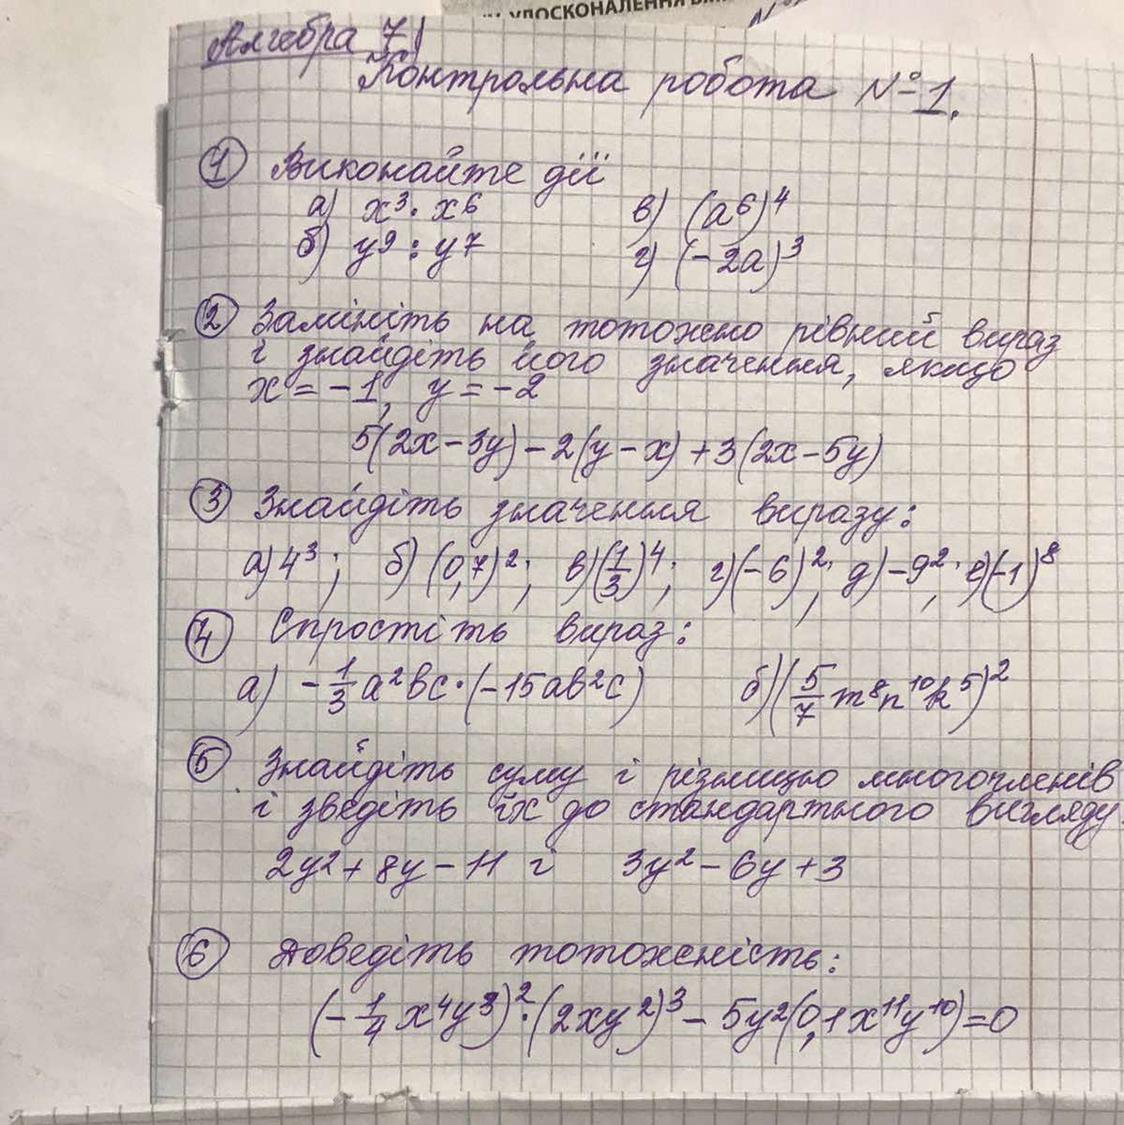 УДОСКОНАЛЕННЯ
Алгебра 7
Контрольна робота №1.
1 Виконайте дії
а) x³ · x⁶ в) (a⁶)⁴
б) y⁹ : y⁷ г) (-2a)³
2 Замініть на тотожно рівний вираз
і знайдіть його значення, якщо
x = -1, y = -2
5(2x - 3y) - 2(y - x) + 3(2x - 5y)
3 Знайдіть значення виразу:
а) 4³; б) (0,7)²; в) (1/3)⁴; г) (-6)²; д) -9²; е) (-1)⁸
4 Спростіть вираз:
а) -1/3 a²bc · (-15ab²c) б) (5/7 m⁸n¹⁰k⁵)²
5 Знайдіть суму і різницю многочленів
і зведіть їх до стандартного вигляду.
2y² + 8y - 11 і 3y² - 6y + 3
6 Доведіть тотожність:
(-1/4 x⁴y³)² · (2xy²)³ - 5y²(0,1x¹¹y¹⁰) = 0